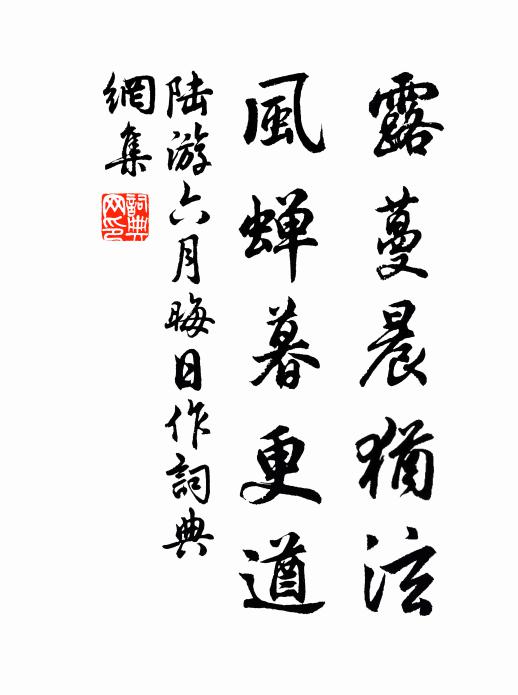 露蔓晨猶泫
風蝉暮更遒
陆游六月晦日作詞典
網集
詞典网印